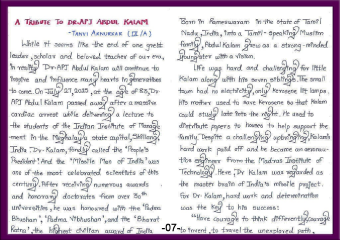 A TRIBUTE TO DR.APJ ABDUL KALAM
-TANVI AKHURKAR (IX/A)
While it seems like the end of one great
leader, scholar and beloved teacher of our era,
in reality Dr.APJ Abdul Kalam will continue to
inspire and influence many hearts in generations
to come. On July 27,2015, at the age of 83, Dr.
APJ Abdul Kalam passed away after a massive
cardiac arrest while delivering a lecture to
the students of the Indian Institute of Manage
ment in the Meghalaya state capital, Shillong,
India. Dr.Kalam, fondly called the "People's
President" And the "Missile Man of India" was
one of the most celebrated scientists of this
century. After receiving numerous awards
and honorary doctorates from over 30
universities, he was honoured with the "Padma
Bhushan", "Padma Vibhushan", and the "Bharat
Ratna", the highest civilian award of India.
Born in Rameswaram in the state of Tamil
Nadu, India, into a Tamil-speaking Muslim
family, Abdul Kalam grew as a strong-minded
youngster with a vision.
Life was hard and challenging for little
Kalam along with his seven siblings. The small
town had no electricity, only kerosene lit lamps.
His mother used to save kerosene so that Kalam
could study late into the night. He used to
distribute papers to homes to help support the
family. Despite a challenging upbringing, Kalam's
hard work paid off and he became an aerona-
utics engineer from the Madras Institute of
Technology. Here, Dr. Kalam was regarded as
the master brain of India's missile project.
For Dr. Kalam, hard work and determination
was the key to his success:
"Have courage to think differently, courage
to invent, to travel the unexplored path,
-07-